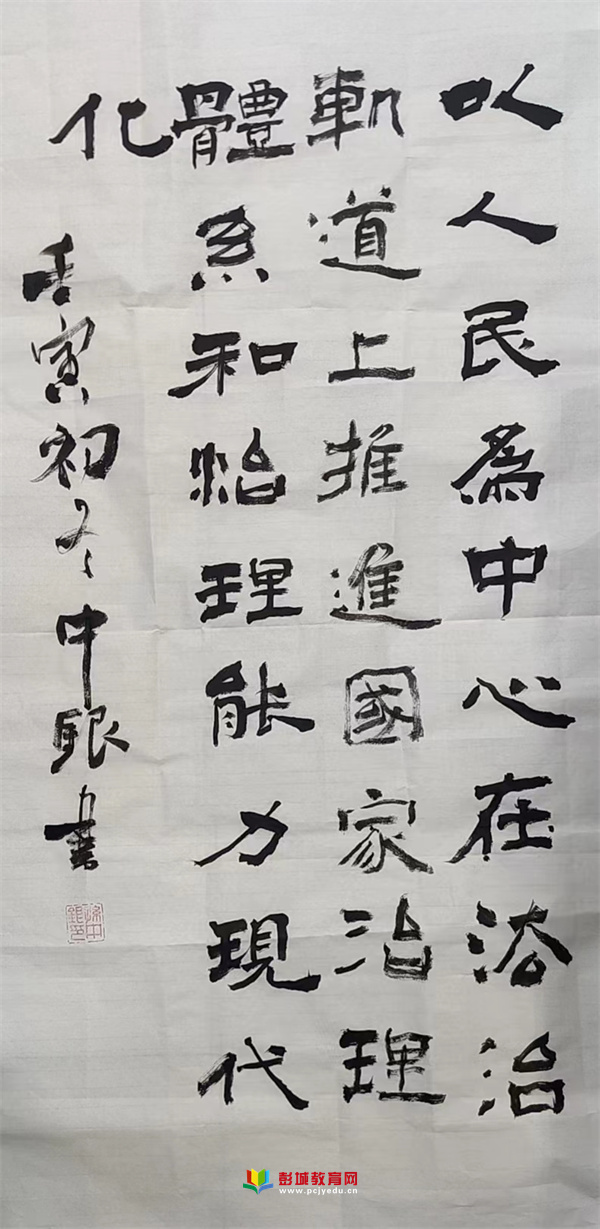 以人民為中心在法治
軌道上推進國家治理
體系和治理能力現代
化
壬寅初冬中銀書
彭城教育网
www.pcjyedu.cn